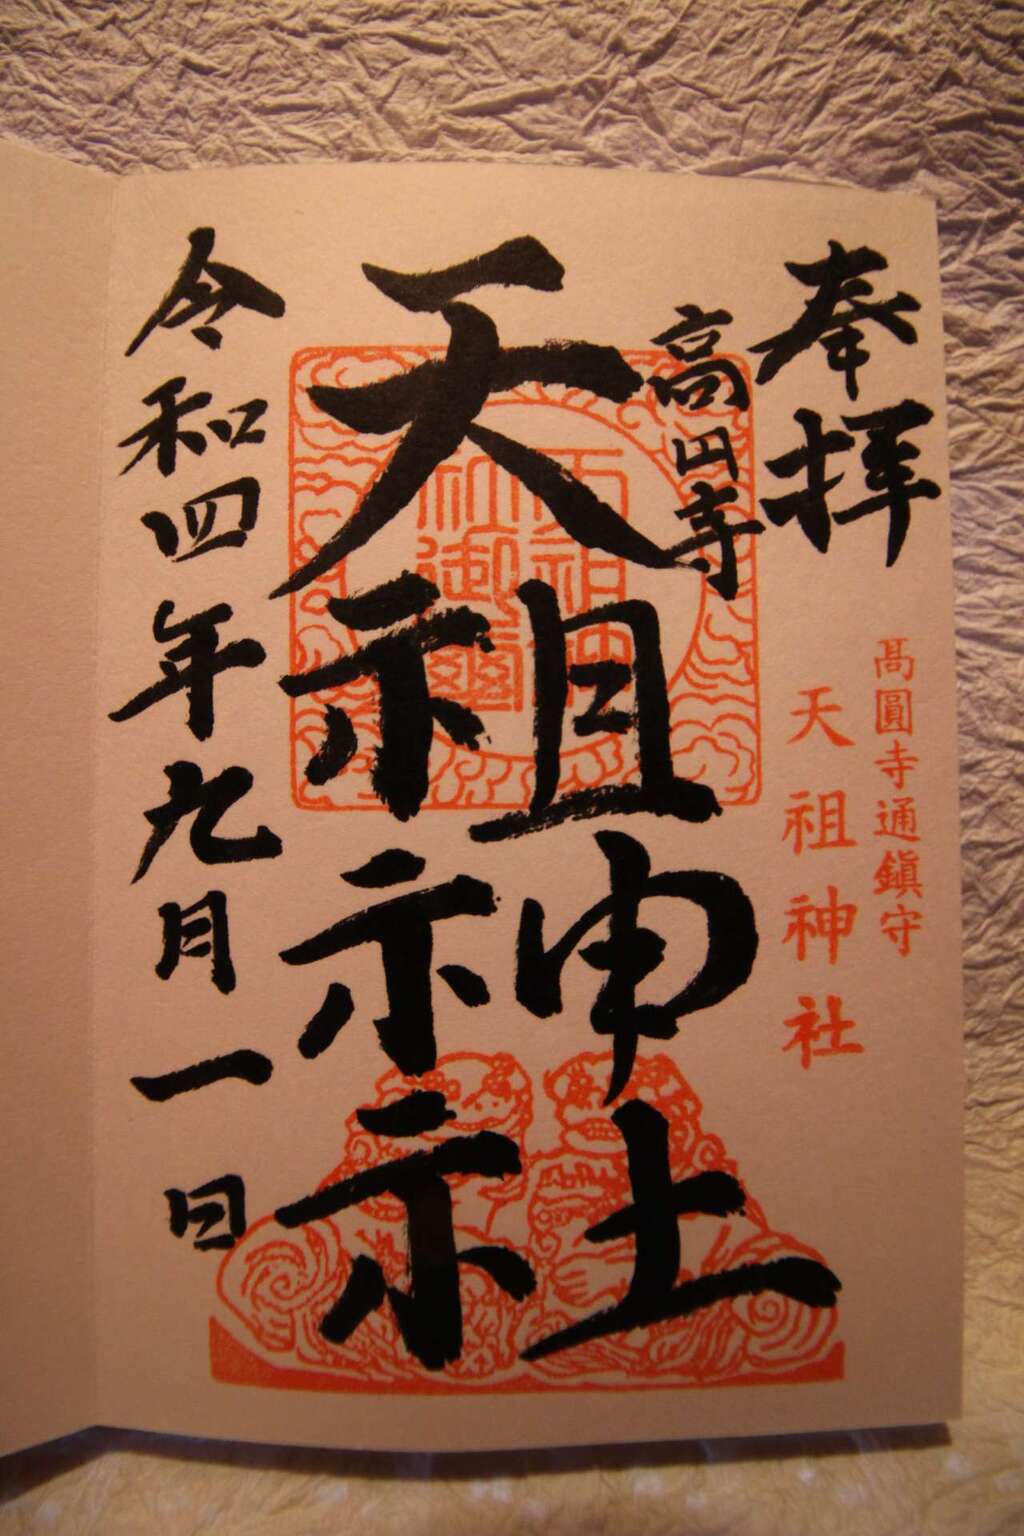 奉拝
髙圓寺通鎭守
天祖神社
高円寺
天祖神社
天祖神社御璽
令和四年九月一日